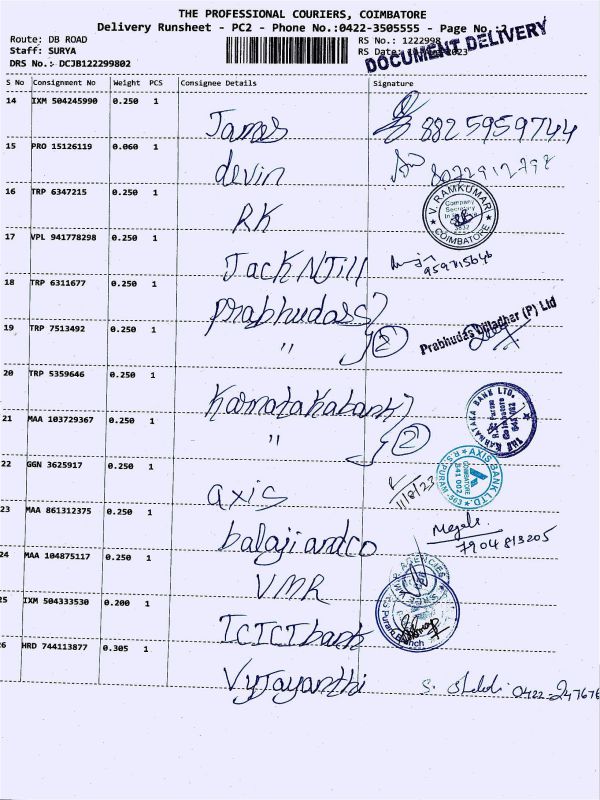 THE PROFESSIONAL COURIERS, COIMBATORE
Delivery Runsheet - PC2 - Phone No.:0422-3505555 - Page No.:2
Route: DB ROAD
RS No.: 1222998
Staff: SURYA
RS Date: 2023
DRS No.: DCJB122299802
DOCUMENT DELIVERY
S No Consignment No Weight PCS Consignee Details Signature
14 IXM 504245990 0.250 1
James 8825959744
15 PRO 15126119 0.060 1
devin 8022912798
16 TRP 6347215 0.250 1
RK
V. RAMKUMAR
Company Secretary
COIMBATORE
17 VPL 941778298 0.250 1
Jack N Jill
18 TRP 6311677 0.250 1
Prabhudass
19 TRP 7513492 0.250 1
" 2
Prabhudas Lilladher (P) Ltd
20 TRP 5359646 0.250 1
Karnataka bank
THE KARNATAKA BANK LTD.
R.S. Puram
Coimbatore
641 002
21 MAA 103729367 0.250 1
" 2
22 GGN 3625917 0.250 1
axis 11/8/23
AXIS BANK LTD
COIMBATORE
641 002
23 MAA 861312375 0.250 1
balaji and co 7904813205
24 MAA 104875117 0.250 1
VMR
AGENCIES
25 IXM 504333530 0.200 1
ICICI bank
Branch
26 HRD 744113877 0.305 1
Vyjayanthi 0422-247676